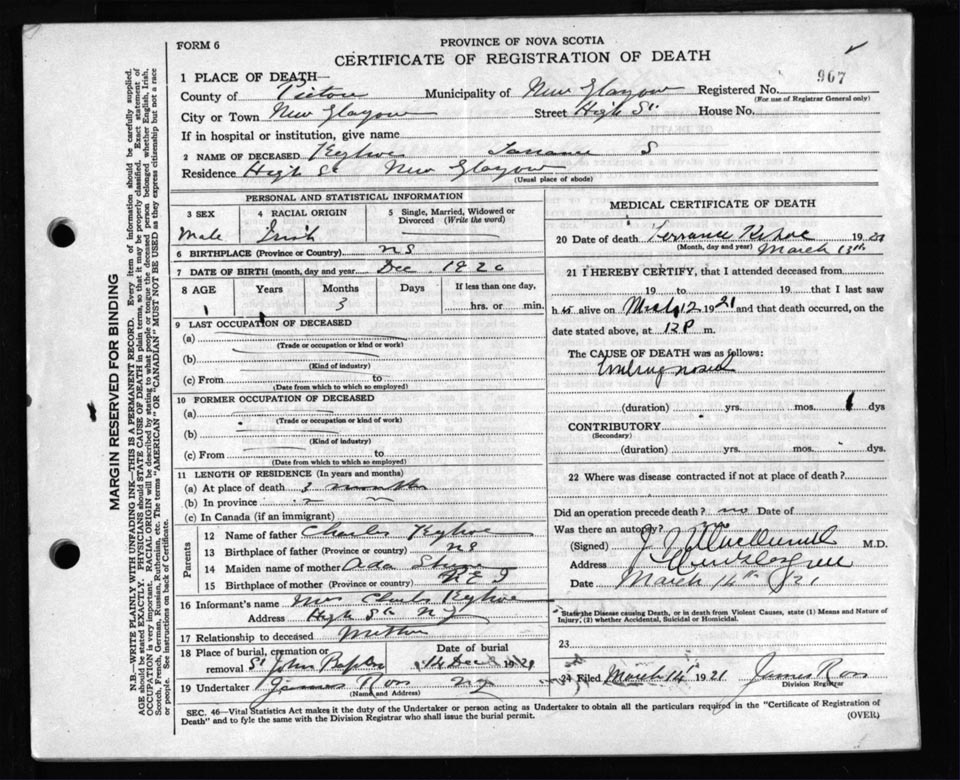 FORM 6
PROVINCE OF NOVA SCOTIA
CERTIFICATE OF REGISTRATION OF DEATH
967
1 PLACE OF DEATH—
County of Pictou Municipality of New Glasgow Registered No.
(For use of Registrar General only)
City or Town New Glasgow Street High St. House No.
If in hospital or institution, give name
2 NAME OF DECEASED Kehoe S
Residence High St New Glasgow
(Usual place of abode)
PERSONAL AND STATISTICAL INFORMATION
3 SEX 4 RACIAL ORIGIN 5 Single, Married, Widowed or Divorced (Write the word)
Male Irish
6 BIRTHPLACE (Province or Country) NS
7 DATE OF BIRTH (month, day and year) Dec. 1920
8 AGE Years Months Days If less than one day,
3 hrs. or min.
9 LAST OCCUPATION OF DECEASED
(a)
(Trade or occupation or kind or work)
(b)
(Kind of industry)
(c) From to
(Date from which to which so employed)
10 FORMER OCCUPATION OF DECEASED
(a)
(Trade or occupation or kind of work)
(b)
(Kind of industry)
(c) From to
(Date from which to which so employed)
11 LENGTH OF RESIDENCE (In years and months)
(a) At place of death 3 months
(b) In province
(c) In Canada (if an immigrant)
Parents
12 Name of father Charles Kehoe
13 Birthplace of father (Province or country) NS
14 Maiden name of mother Ada
15 Birthplace of mother (Province or country) P E I
16 Informant's name Mrs Charles Kehoe
Address High St N G
17 Relationship to deceased Mother
18 Place of burial, cremation or removal St John Baptist Date of burial 14 1921
19 Undertaker James Ross N G
(Name and Address)
MEDICAL CERTIFICATE OF DEATH
20 Date of death Terrance Kehoe 1921
(Month, day and year) March 13th
21 I HEREBY CERTIFY, that I attended deceased from
19 to 19 that I last saw
h alive on March 12 1921 and that death occurred, on the
date stated above, at 12 P m.
The CAUSE OF DEATH was as follows:
(duration) yrs. mos. 1 dys
CONTRIBUTORY
(Secondary)
(duration) yrs. mos. dys.
22 Where was disease contracted if not at place of death?
Did an operation precede death? no Date of
Was there an autopsy? no
(Signed) M.D.
Address New Glasgow
Date March 14th /21
*State the Disease causing Death, or in death from Violent Causes, state (1) Means and Nature of Injury, (2) whether Accidental, Suicidal or Homicidal.
23
24 Filed March 14 1921 James Ross
Division Registrar
SEC. 46—Vital Statistics Act makes it duty of the Undertaker or person acting as Undertaker to obtain all the particulars required in the "Certificate of Registration of
Death" and to fyle the same with the Division Registrar who shall issue the burial permit.
(OVER)
MARGIN RESERVED FOR BINDING
N.B.—WRITE PLAINLY, WITH UNFADING INK—THIS IS A PERMANENT RECORD. Every item of information should be carefully supplied.
AGE should be stated EXACTLY. PHYSICIANS should STATE CAUSE OF DEATH in plain terms, so that it may be properly classified. Exact statement of
OCCUPATION is very important. RACIAL ORIGIN will be described by stating to what people or tongue the deceased person belonged whether English, Irish,
Scotch, French, German, Russian, Ruthenian, etc. The terms "AMERICAN" OR "CANADIAN" MUST NOT BE USED as they express citizenship but not a race
or people. See instructions on back of Certificate.